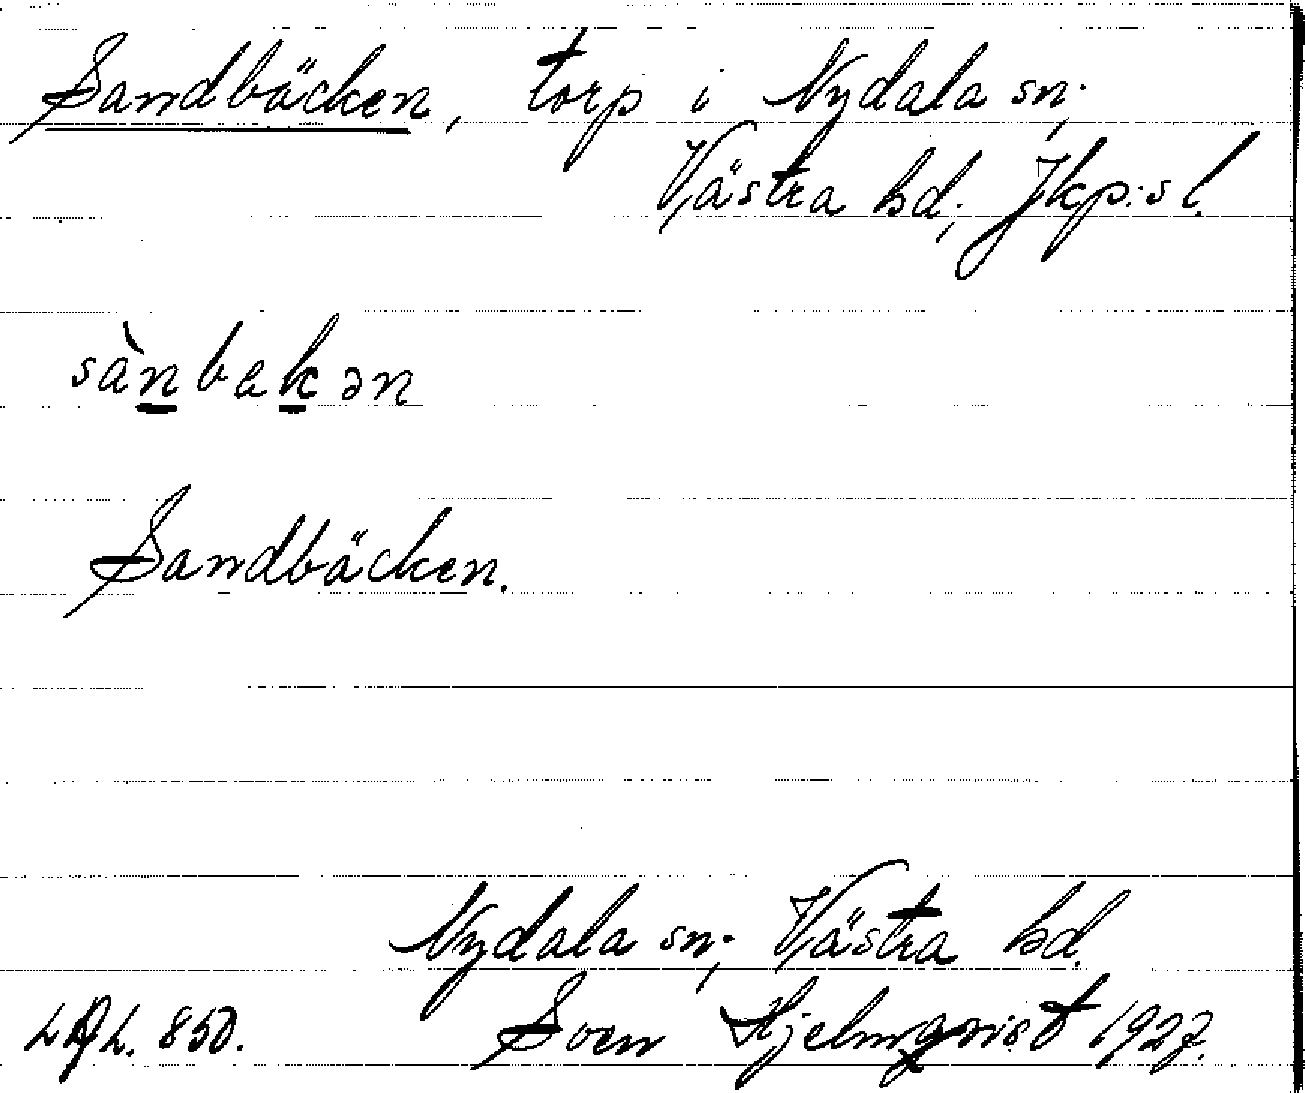 Sandbäcken, torp i Nydala sn.,
Västra hd., Jkp:s l.
sànbakən
Sandbäcken.
Nydala sn., Västra hd.
Sven Hjelmqvist 1927.
850.